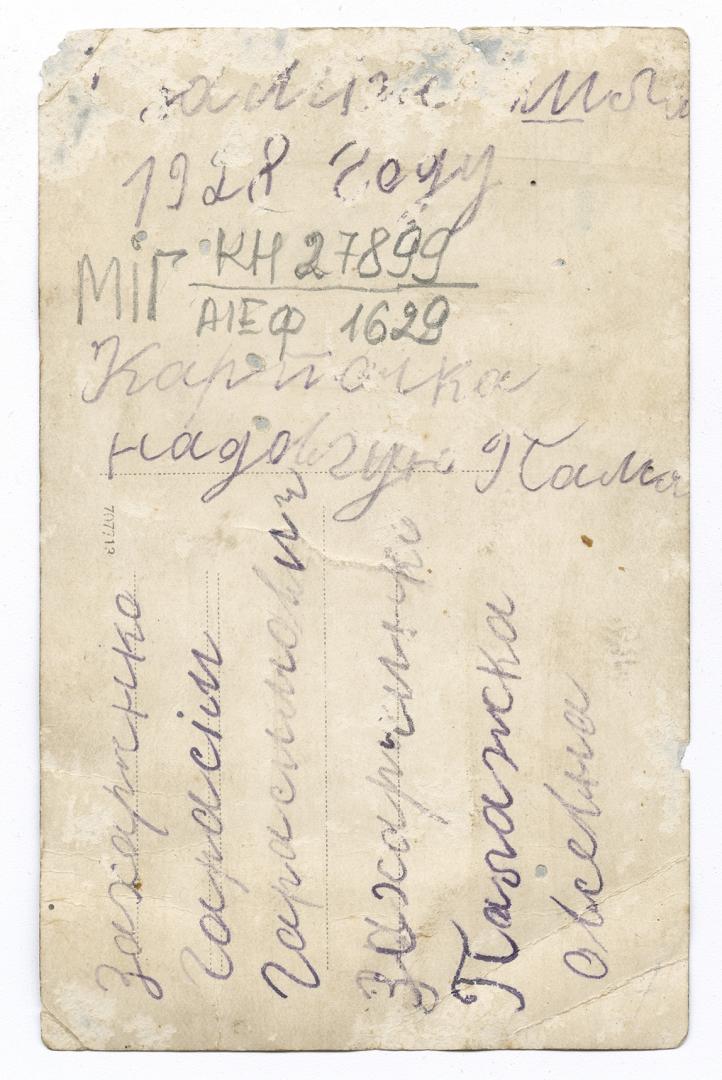 1928 году
МІГ КН 27899
АІЕФ 1629
Карточка
на довгую Пама
707713
Захаренко
Гарасім
Гарасимович
Захаренко
Палажка
Овсевна